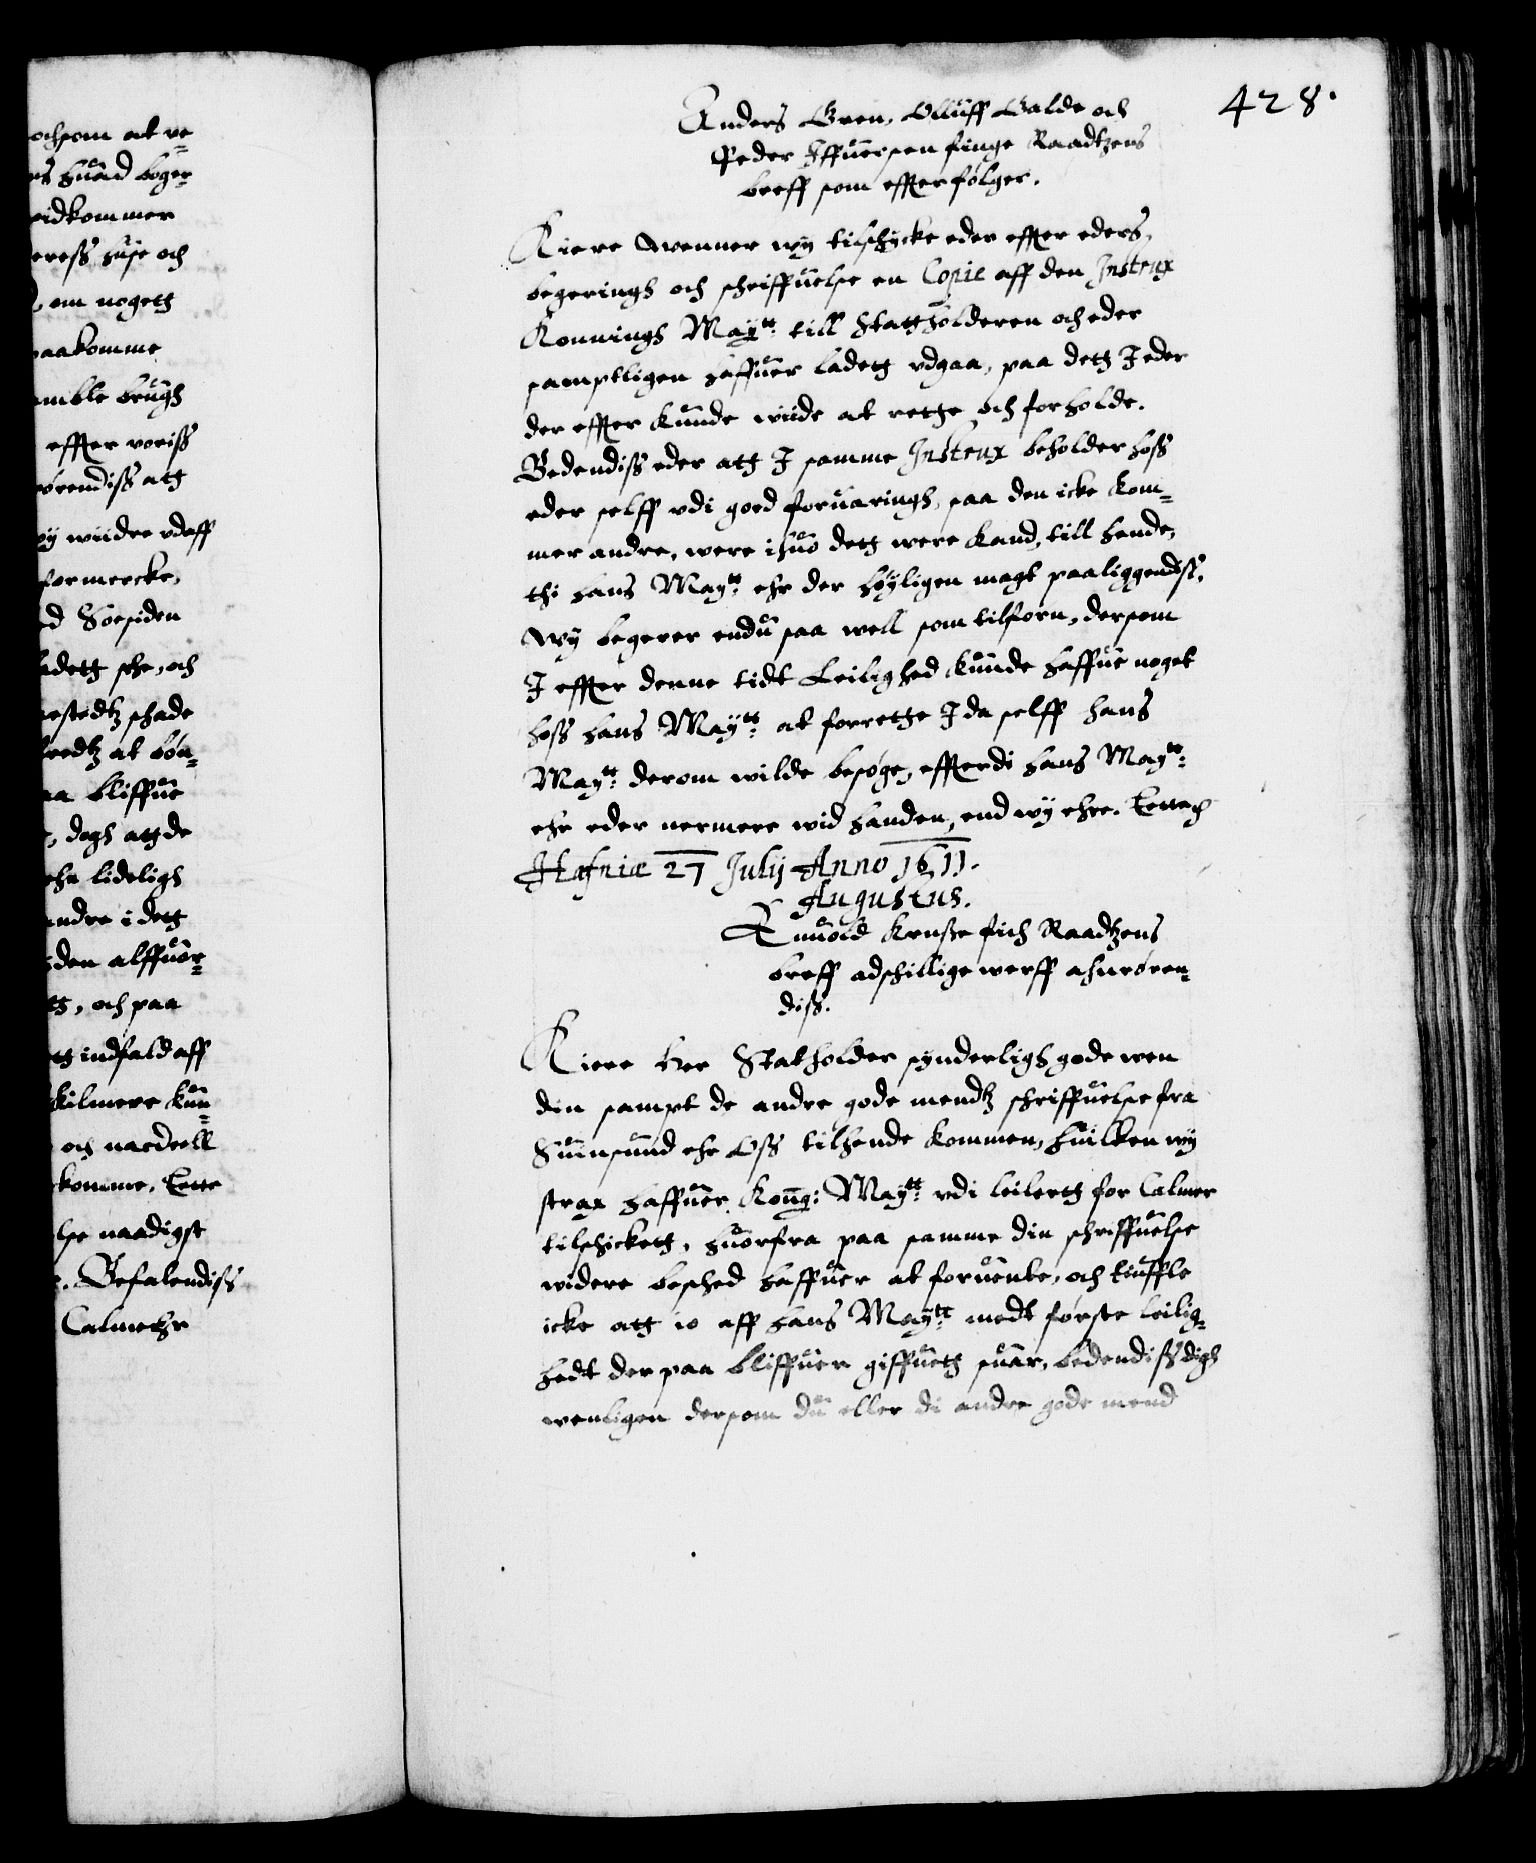 ochsom at re-
huad boger-
vidkommer
eress huse och
om nogetth
paakomme
amble brugh
effter voriss
rørendiss att
wy wiidre vdaff
formercke,
d Søesiden
ladett sche, och
estedtz schade
reedtz at bøn-
aa bliffue
dogh att de
ehr lideligh
andre i dett
den alffuor-
tt, och paa
tt indfald aff
kilmere kun-
och nardeell
komme, Lette
lse naadigst
Befalendiss
Calmehr
428.
Anders Gren, Olluff Galde och
Peder Iffuersen finge Raadtzens
breff som effterfølger.
Kiere wenner wy tilschycke eder effter eders
begeringh och schriffuelse en Copie aff den Instrux
Konningh Maytt: till Stattholderen och eder
samptligen haffuer ladett vdgaa, paa dett I eder
der effter kunde wiide at rette och forholde.
Bedendiss eder att I samme Instrux beholder hoss
eder selff vdi goed foruaringh, saa den icke kom-
mer andre, were ihuo dett were kand, till hende,
thi hans Maytt: ehr der høyligen magt paaliggendiss,
Wy begerer endu saa well som tilforn, dersom
I effter denne tidt Leilighed kunde haffue noget
hoss hans Maytt: at forrette I da selff hans
Maytt: derom wilde besøge, effterdi hans Maytt:
ehr eder nermere wid handen, end wy ehre.
Hafniæ 27 Julij Anno 1611.
Augustus.
Enuold Kruse fich Raadtzens
breff adschillige werff ahnrøren-
diss.
Kiere Her Statholder synderligh gode wen
din sampt de andre gode mendtz schriffuelse fra
Suinsund ehr Oss tilhende kommen, huilken wy
strax haffuer Kong: Maytt: vdi leilertt for Calmer
tilschickett, huorfra paa samme din schriffuelse
widere besched haffuer at foruente, och tiuffle
icke att io aff hans Maytt: medt første leilig-
hedt der paa bliffuer giffuett suar, bedendiss digh
wenligen dersom du eller di andre gode mend